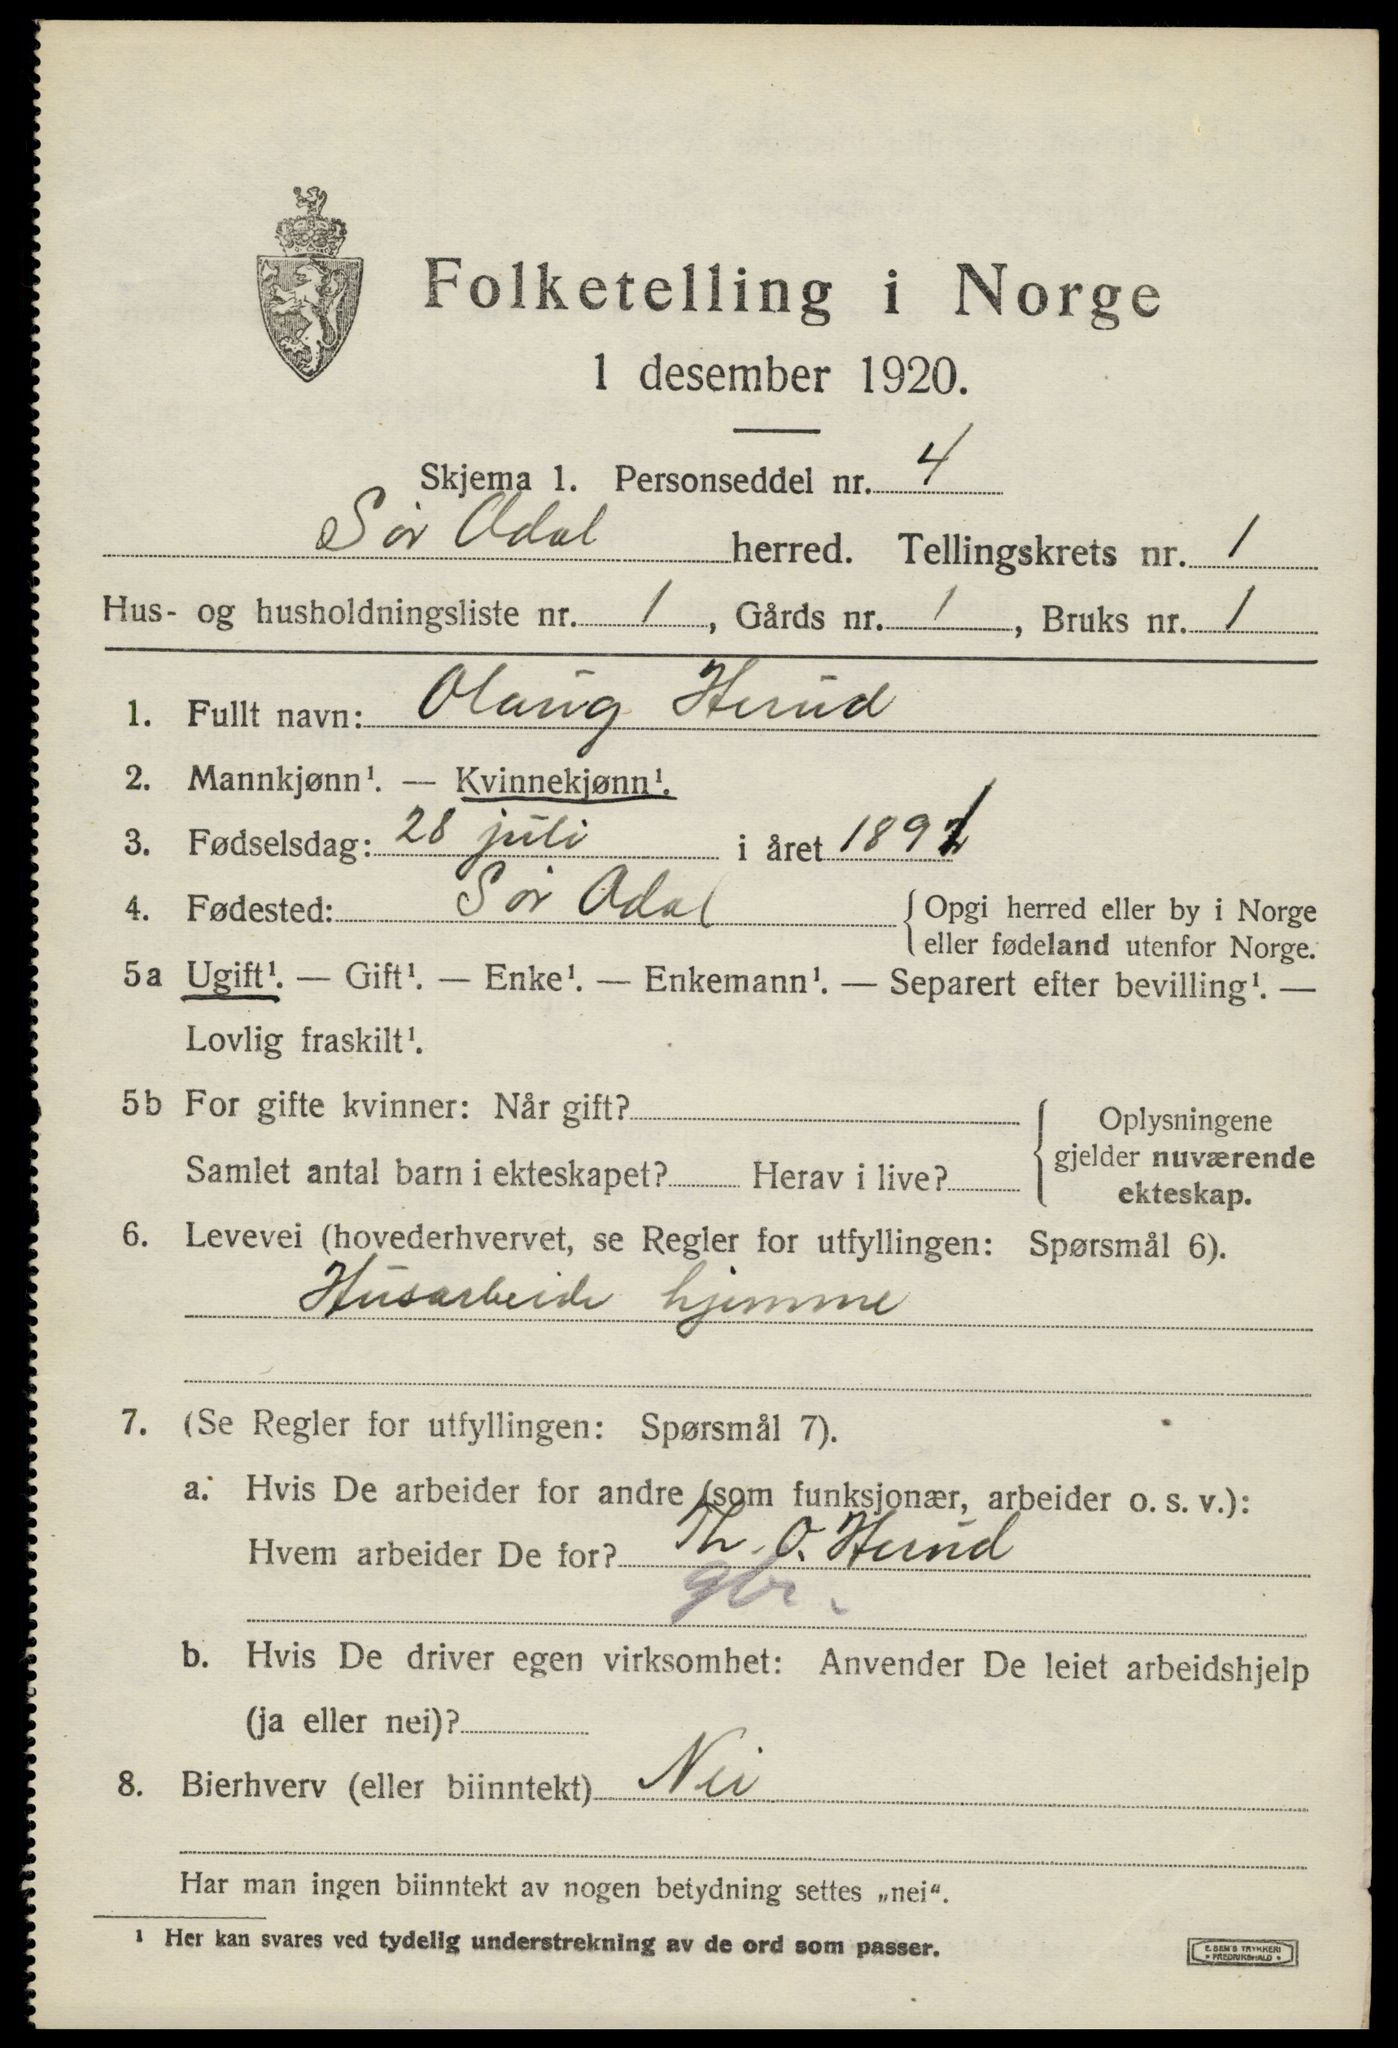 Folketelling i Norge
1 desember 1920.
Skjema 1. Personseddel nr. 4
Sør Odal herred. Tellingskrets nr. 1
Hus- og husholdningsliste nr. 1, Gårds nr. 1, Bruks nr. 1
1. Fullt navn: Olaug Herud
2. Mannkjønn¹. — Kvinnekjønn¹.
3. Fødselsdag: 28 juli i året 1891
4. Fødested: Sør Odal { Opgi herred eller by i Norge
eller fødeland utenfor Norge.
5a Ugift¹. — Gift¹. — Enke¹. — Enkemann¹. — Separert efter bevilling¹. —
Lovlig fraskilt¹.
5b For gifte kvinner: Når gift?
Samlet antal barn i ekteskapet? Herav i live?
Oplysningene
gjelder nuværende
ekteskap.
6. Levevei (hovederhvervet, se Regler for utfyllingen: Spørsmål 6).
Husarbeide hjemme
7. (Se Regler for utfyllingen: Spørsmål 7).
a. Hvis De arbeider for andre (som funksjonær, arbeider o. s. v.):
Hvem arbeider De for? Th. O. Herud
gbr.
b. Hvis De driver egen virksomhet: Anvender De leiet arbeidshjelp
(ja eller nei)?
8. Bierhverv (eller biinntekt) Nei
Har man ingen biinntekt av nogen betydning settes „nei“.
¹ Her kan svares ved tydelig understrekning av de ord som passer.
E. SEM'S TRYKKERI
FREDRIKSHALD